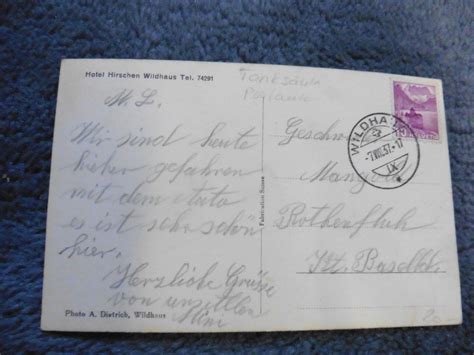 Hotel Hirschen Wildhaus Tel. 74291
Tanksäule
Postauto
M. L.
Wir sind heute
hieher gefahren
mit dem Auto
es ist sehr schön
hier.
Herzliche Grüsse
von
Photo A. Dietrich, Wildhaus
Fabrication Suisse
HELVETIA
WILDHAUS
-7.VIII.37.-17
IX
Geschw.
Rothenfluh
Kt. Baselld.
20